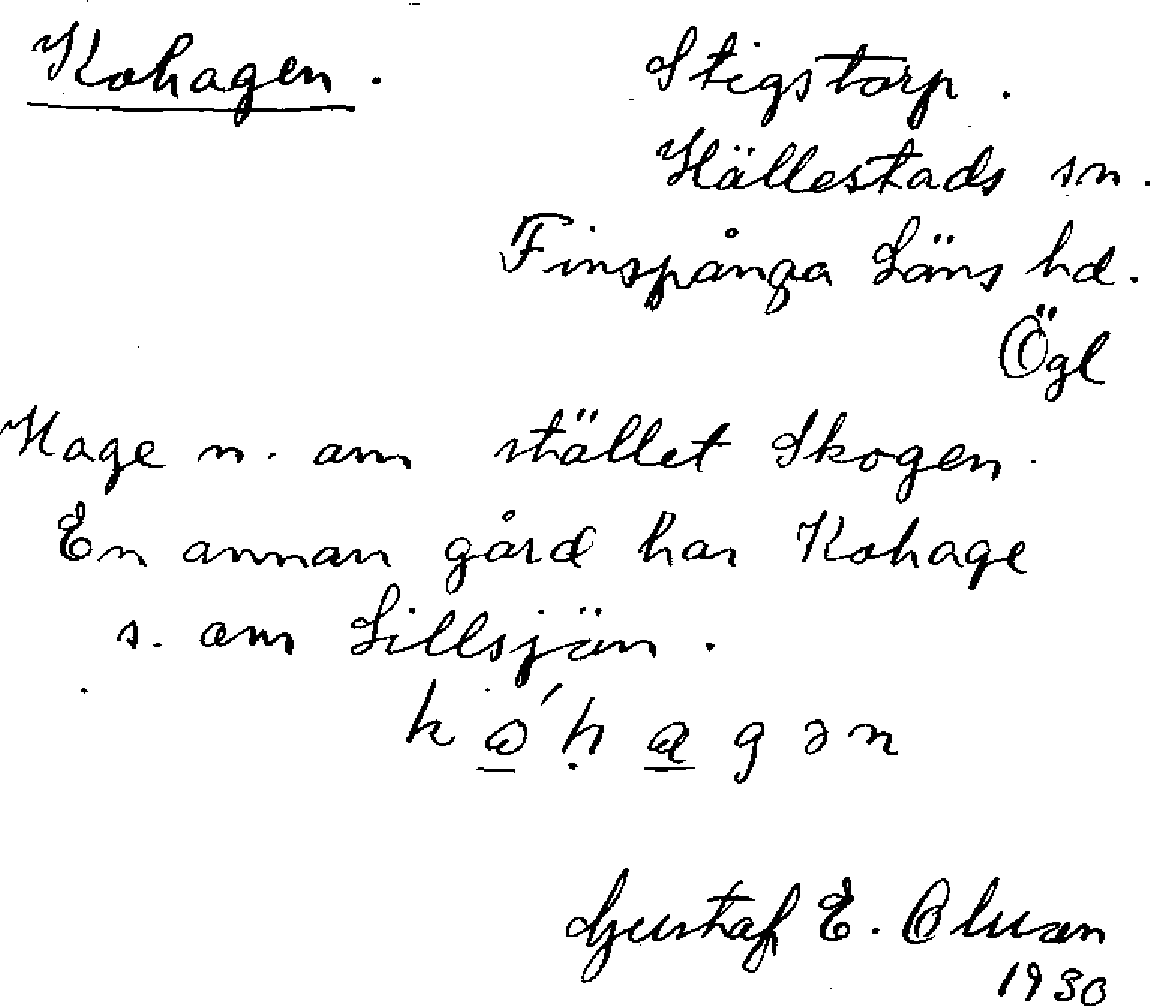 Kohagen. Stigstorp.
Hällestads sn.
Finspånga Läns hd.
Ögl
Hage n. om stället Skogen.
En annan gård har Kohage
s. om Lillsjön.
Gustaf E. Olsson
1930